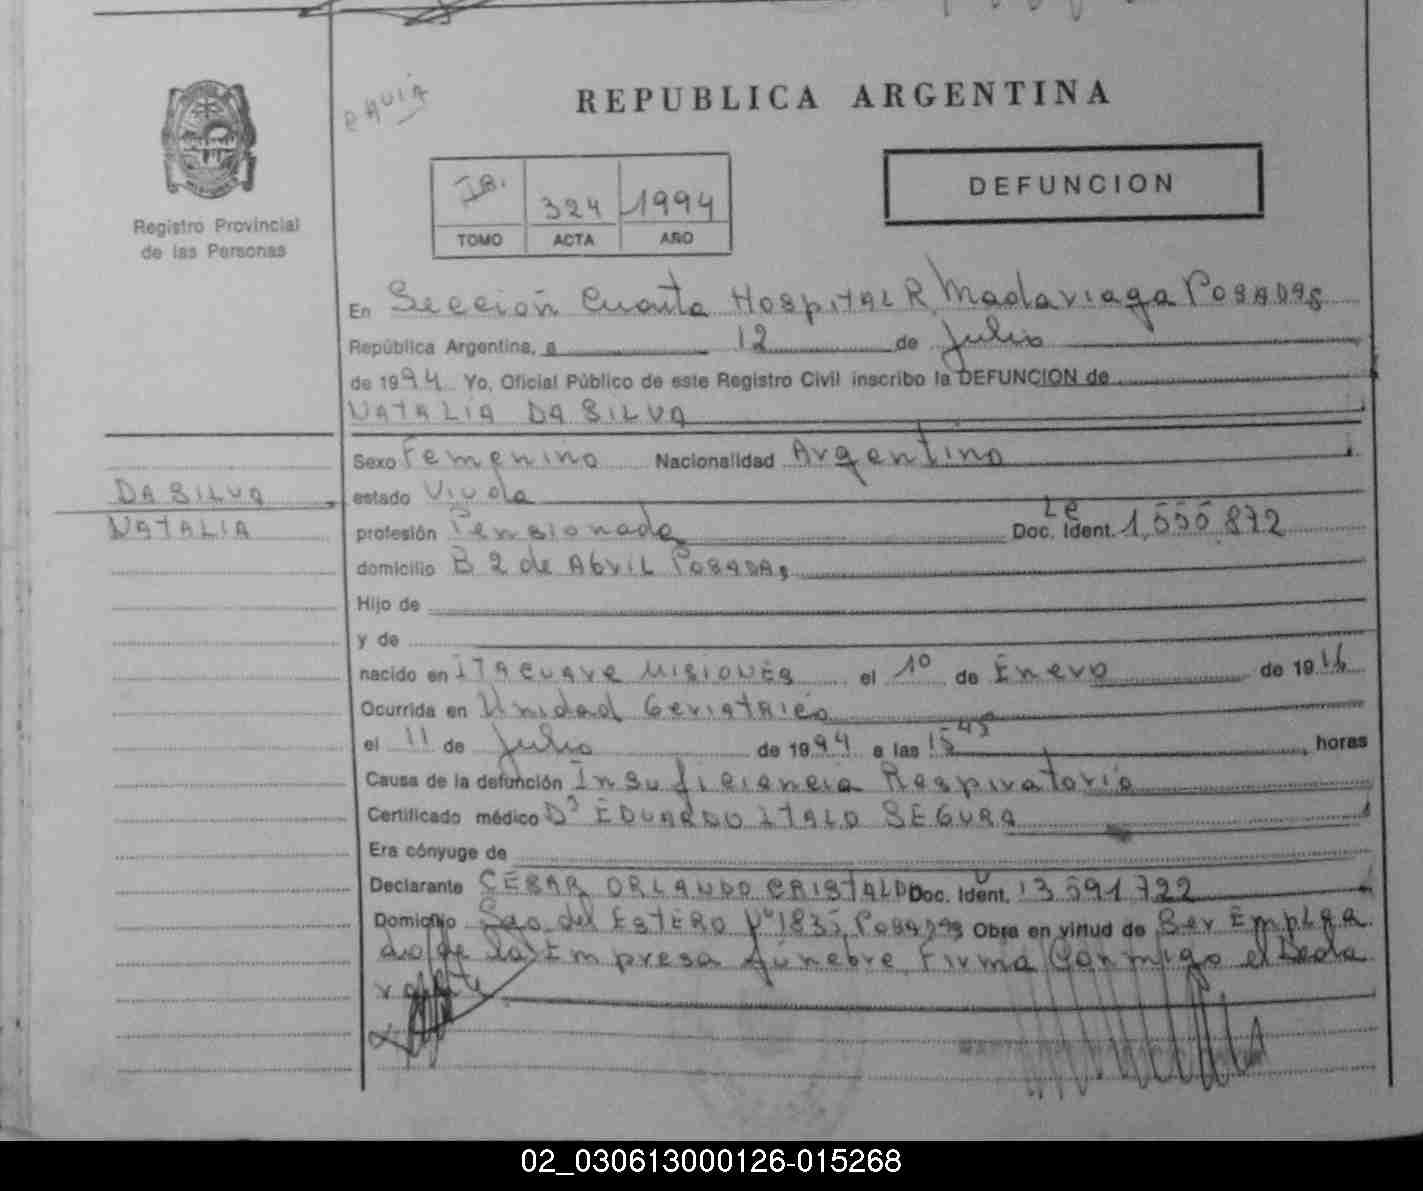 REPUBLICA ARGENTINA
DEFUNCION
324 1994
TOMO ACTA AÑO
Registro Provincial
de las Personas
En Sección Cuarta Hospital R Madariaga Posadas
República Argentina, a 12 de Julio
de 1994 Yo, Oficial Público de este Registro Civil inscribo la DEFUNCION de
NATALIA DA SILVA
DA SILVA
NATALIA
Sexo Femenino Nacionalidad Argentina
estado Viuda
profesión Pensionada Doc. Ident. Le 1.555.872
domicilio B 2 de Abril Posadas
Hijo de
y de
nacido en ITACUARE MISIONES el 1º de Enero de 1916
Ocurrida en Unidad Geriatrica
el 11 de Julio de 1994 a las 15 45 horas
Causa de la defunción Insuficiencia Respiratoria
Certificado médico Dr EDUARDO ITALO SEGURA
Era cónyuge de
Declarante CESAR ORLANDO CRISTALDO Doc. Ident. 13.591.722
Domicilio Sgo del ESTERO Nº 1835 Posadas Obra en virtud de Ser Emplea
do de la Empresa fúnebre Firma Conmigo el Decla
rante
02_030613000126-015268